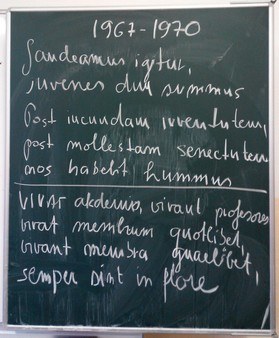 1967-1970
Gaudeamus igitur,
juvenes dum summus
Post iucundam iuventutem,
post mollestam senectutem
nos habebt hummus
VIVAT akdemia, vivant profesores
vivat membrum quotlibet,
vivant membra quaelibet,
semper sint in flore